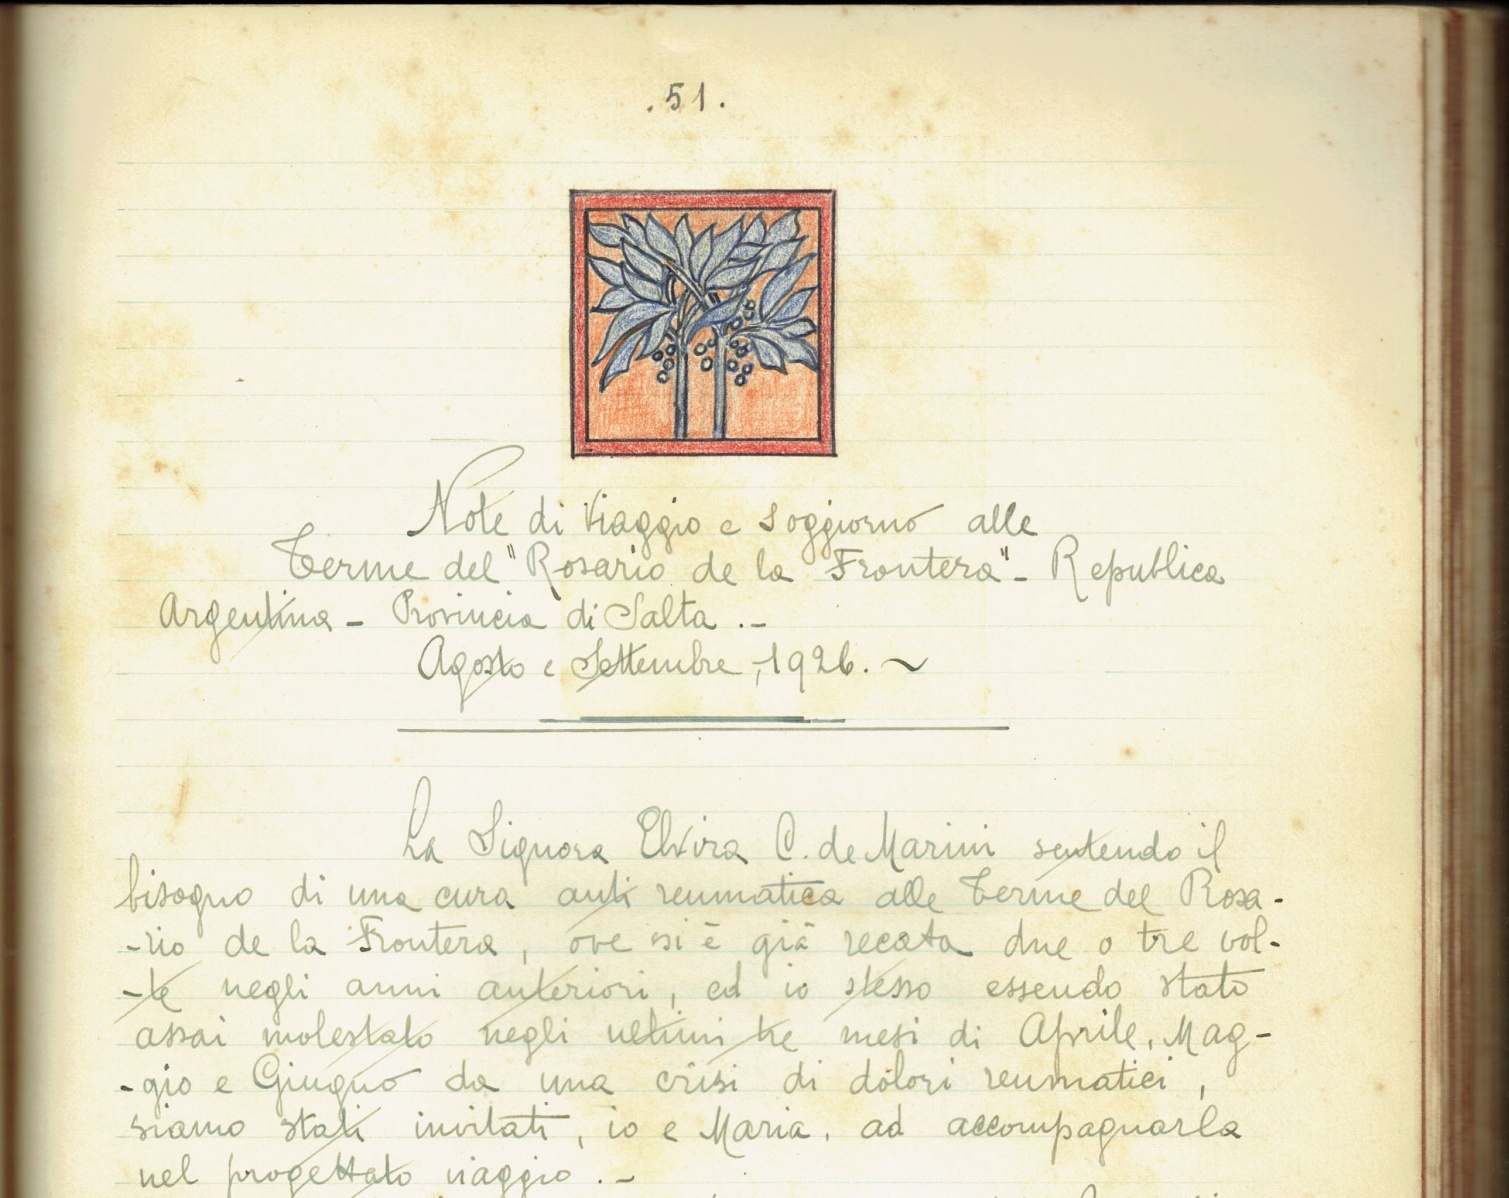 .51.
Note di Viaggio e soggiorno alle
Terme del "Rosario de la Frontera" - Republica
Argentina - Provincia di Salta .-
Agosto e Settembre, 1926. ~
La Signora Elvira C. de Marini sentendo il
bisogno di una cura anti reumatica alle Terme del Rosa-
-rio de la Frontera, ove si è già recata due o tre vol-
-te negli anni anteriori, ed io stesso essendo stato
assai molestato negli ultimi tre mesi di Aprile, Mag-
-gio e Giugno da una crisi di dolori reumatici,
siamo stati invitati, io e Maria, ad accompagnarla
nel progettato viaggio .-